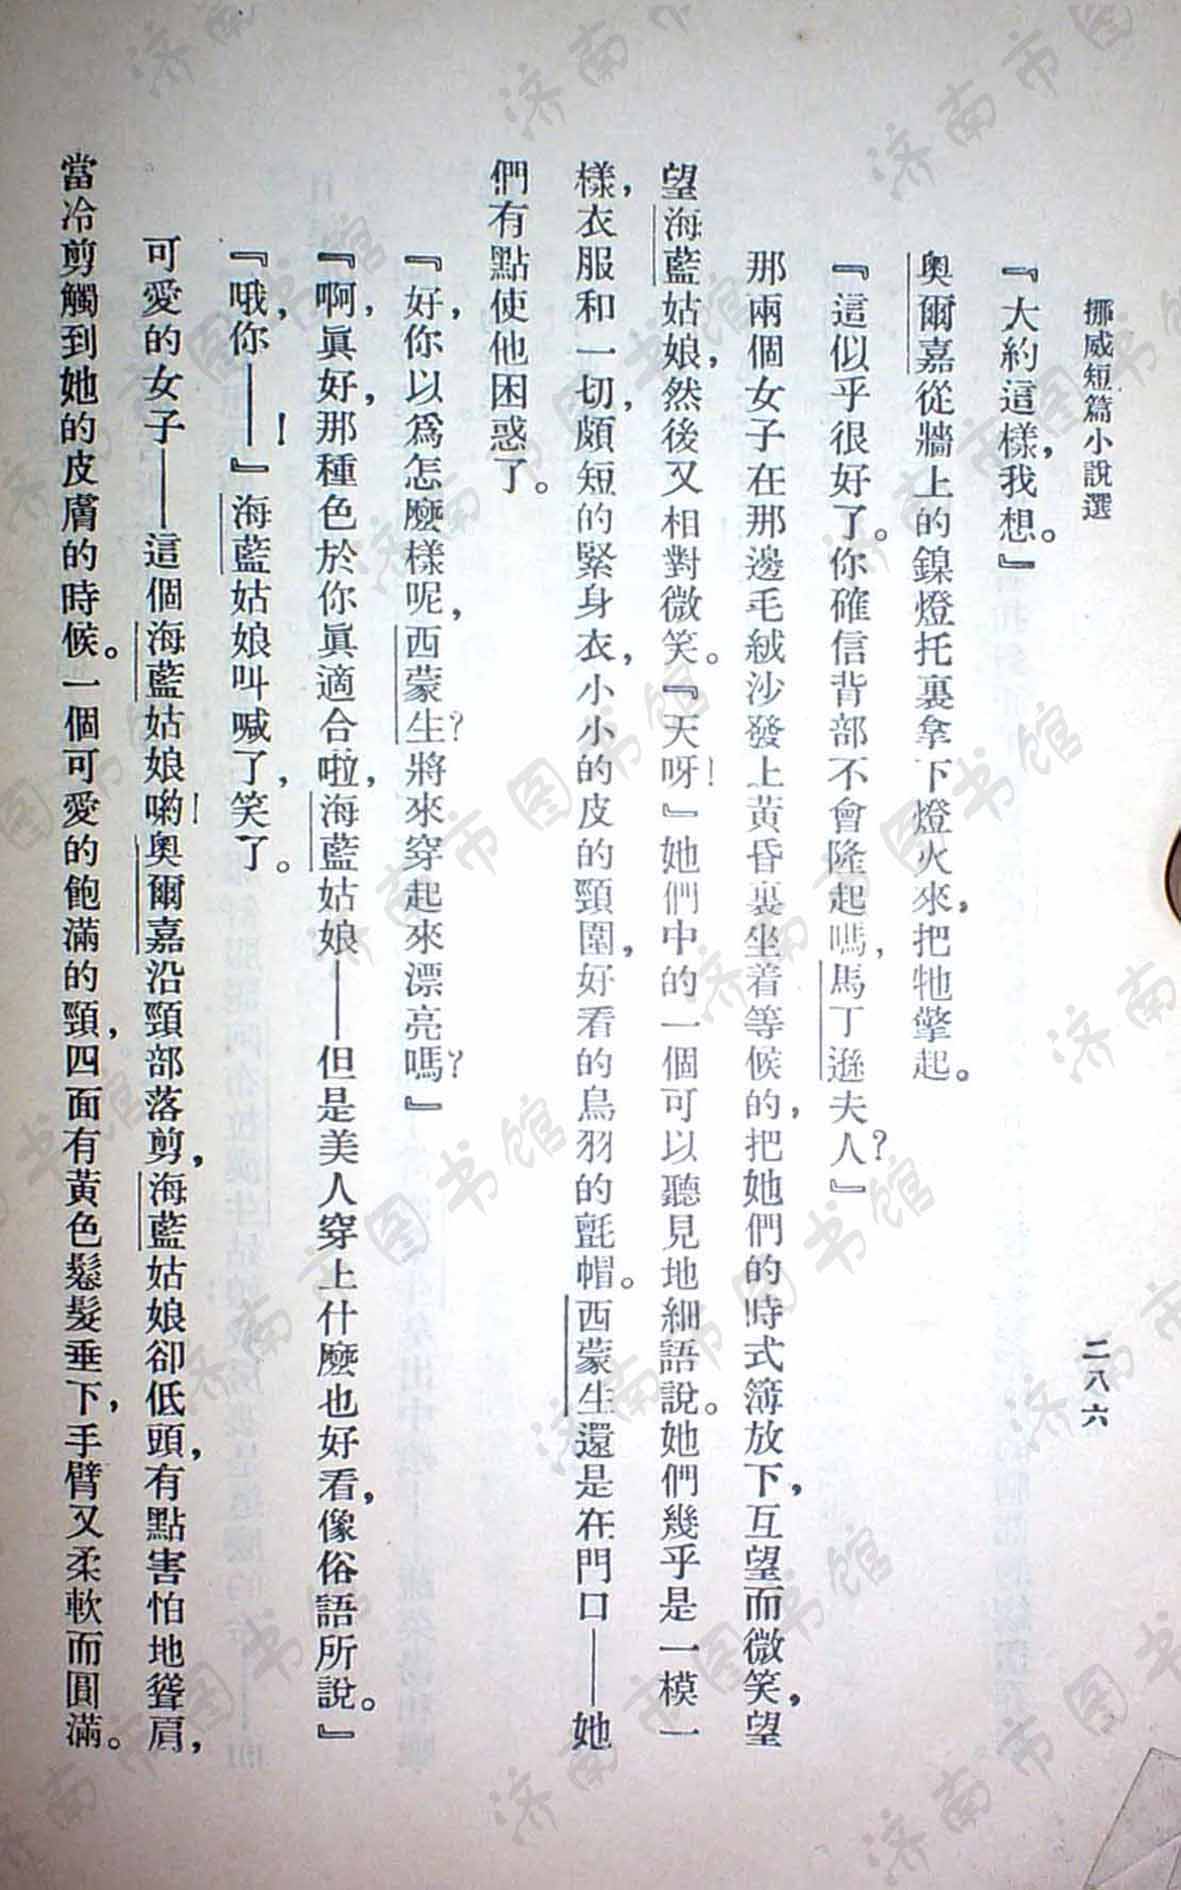 挪威短篇小說選
二八六
『大約這樣，我想。』
奧爾嘉從牆上的鎳燈托裏拿下燈火來，把牠擎起。
『這似乎很好了。你確信背部不會隆起嗎，馬丁遜夫人？』
那兩個女子在那邊毛絨沙發上黃昏裏坐着等候的，把她們的時式簿放下，互望而微笑，望
望海藍姑娘，然後又相對微笑。『天呀！』她們中的一個可以聽見地細語說。她們幾乎是一模一
樣，衣服和一切，頗短的緊身衣，小小的皮的頸圍，好看的鳥羽的氈帽。西蒙生還是在門口——她
們有點使他困惑了。
『好，你以爲怎麼樣呢，西蒙生？將來穿起來漂亮嗎？』
『啊，眞好，那種色於你眞適合啦，海藍姑娘——但是美人穿上什麼也好看，像俗語所說。』
『哦，你——！』海藍姑娘叫喊了，笑了。
可愛的女子——這個海藍姑娘喲！奧爾嘉沿頸部落剪，海藍姑娘卻低頭，有點害怕地聳肩，
當冷剪觸到她的皮膚的時候。一個可愛的飽滿的頸，四面有黃色鬆髮垂下，手臂又柔軟而圓滿。
济南市图书馆